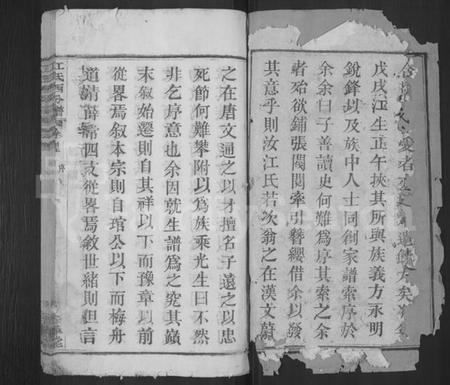 戊戌江生正午挾其所與族義方永明
銳鋒以及族中人士同創家譜索序於
余余曰子善讀史何難為序其索之余
者殆欲鋪張閥閱牽引簪纓借余以發
其意乎則汝江氏若次翁之在漢文蔚
之在唐文通之以才擅名子遠之以忠
死節何難攀附以為族乘光生曰不然
非乞序意也余因就生譜為之究其巔
末敘始遷則自其祥以下而豫章以前
從畧焉敘本宗則自琯公以下而梅舟
道靖薛霈四支從畧焉敘世緒則但言